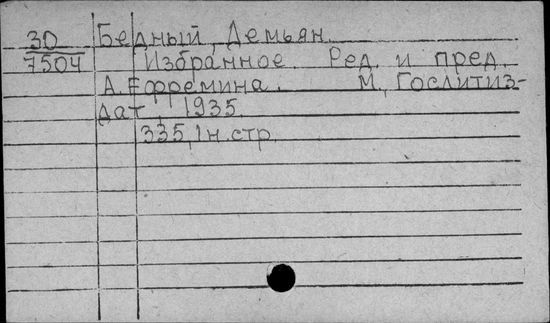 30 Бедный, Демьян.
7504 Избранное. Ред. и пред.
А. Ефремина. М., Гослитиз-
дат, 1935.
335, 1 н. стр.